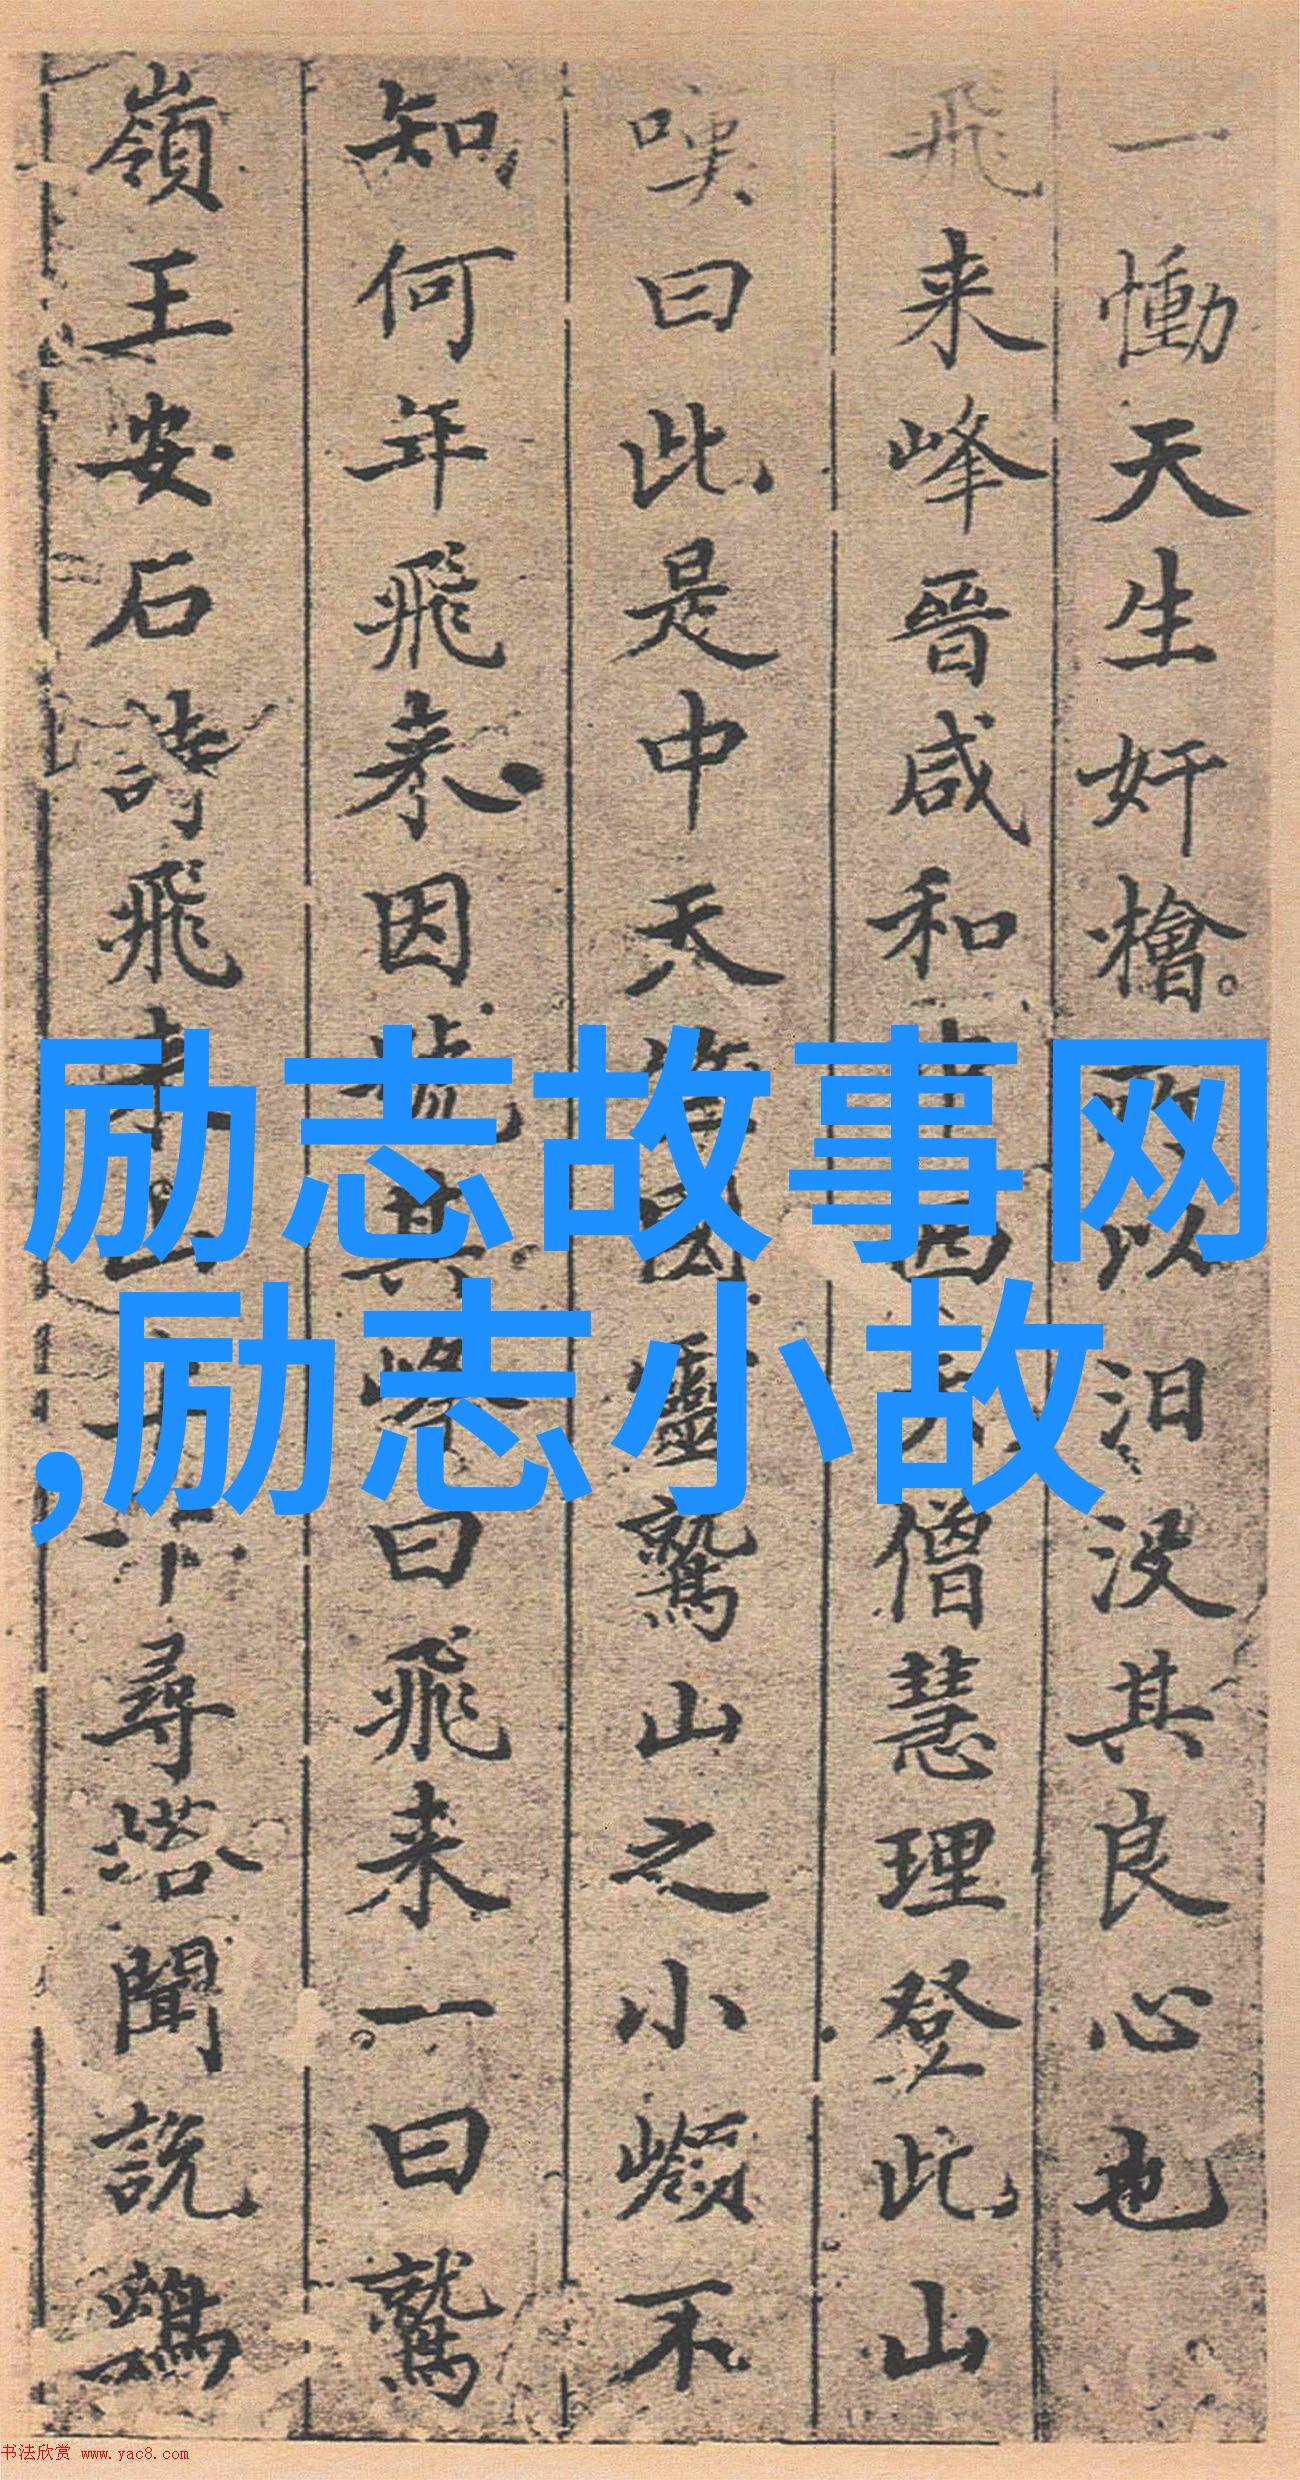 一慟天生奸檜所以汨没其良心也
飛来峰晉咸和中西天僧慧理登此山
嘆曰此是中天竺國靈鷲山之小嶺不
知何年飛来因號其峰曰飛来一曰鷲
嶺王安石詩飛来山上千尋塔聞説鷄
励志故事网
,励志小故
书法欣赏 www.yac8.com